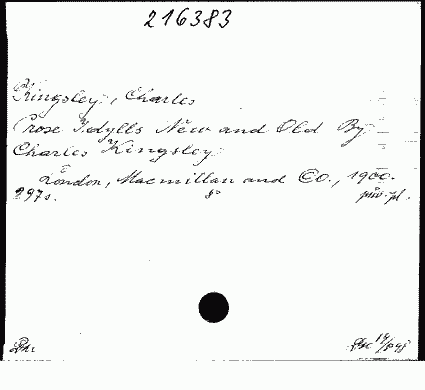 216383
Kingsley, Charles
Prose Idylls New and Old By
Charles Kingsley
London, Macmillan and Co., 1900.
297s. 8° püv. pl.